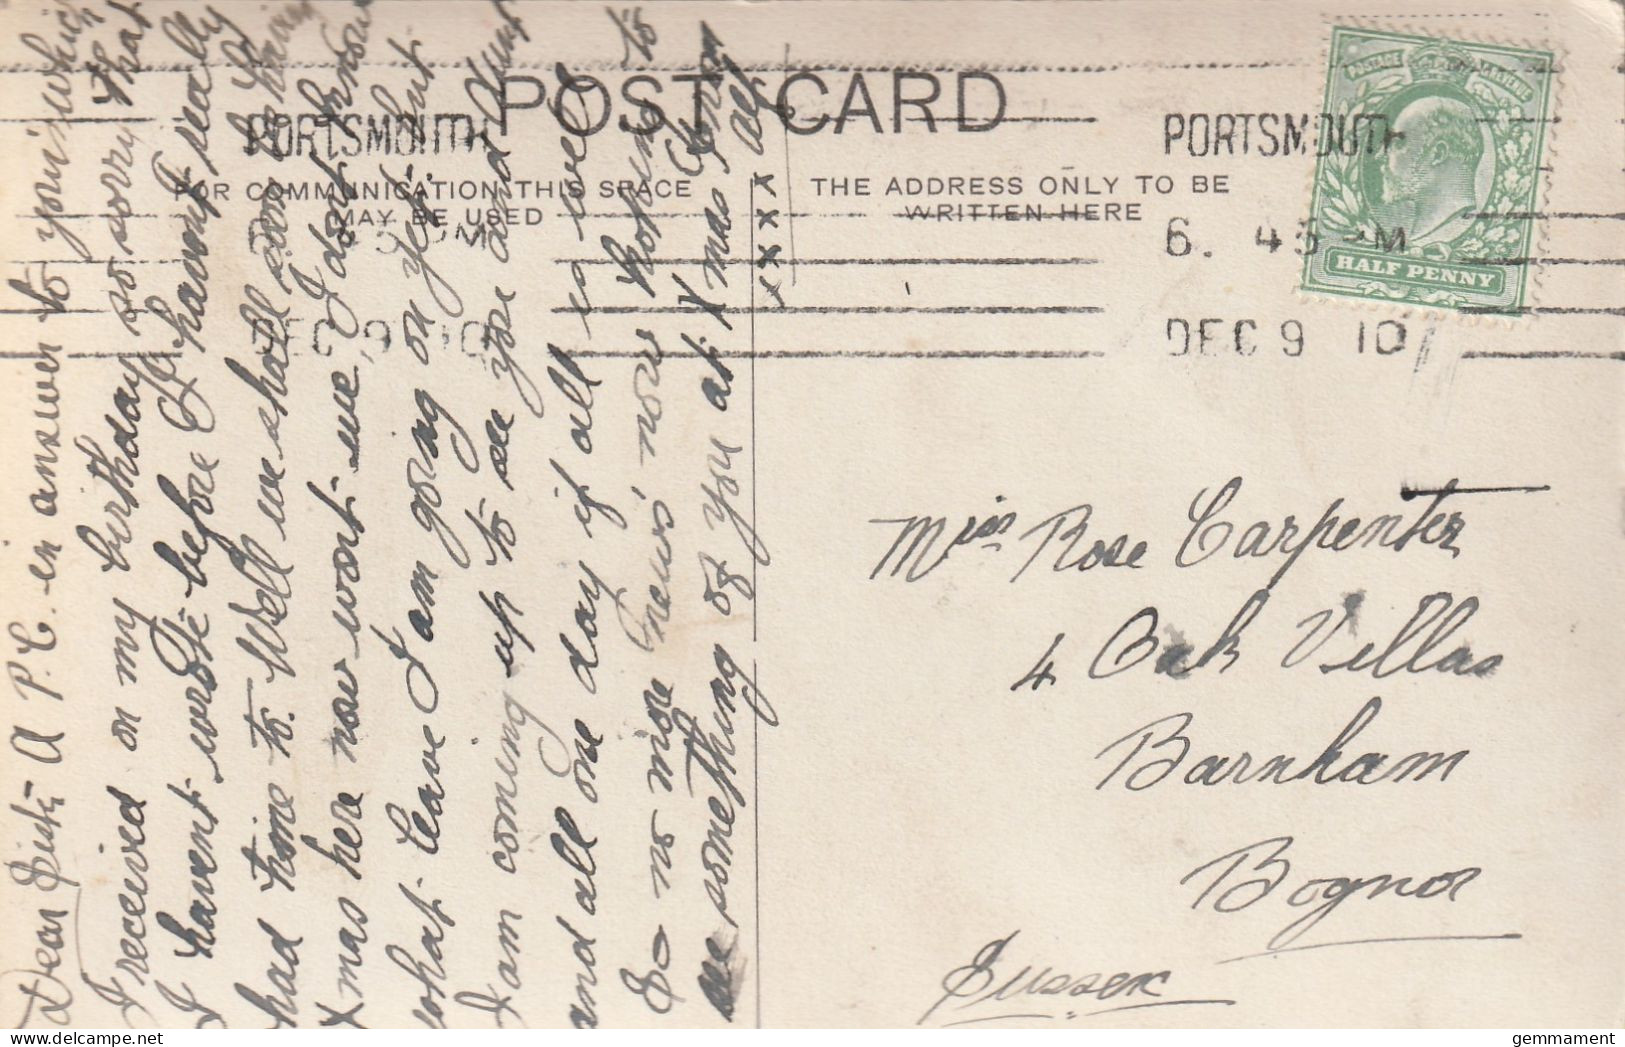 POST CARD
PORTSMOUTH
PORTSMOUTH
FOR COMMUNICATION THIS SPACE
MAY BE USED
THE ADDRESS ONLY TO BE
WRITTEN HERE
6. 45 PM
DEC 9 10
DEC 9 10
POSTAGE REVENUE
HALF PENNY
Dear Sister A P.C. in answer to yours which
I received on my birthday so sorry that
I havent wrote before I havent really
had time to. Well we shall soon be having
Xmas here now wont we, I dont know
what leave I am going on yet. but
I am coming up to see you and Aunt
and all one day if all is well
So no more news now hoping to
see something of you at Xmas
all
x x x x x
Miss Rose Carpenter
4 Oak Villas
Barnham
Bognor
Sussex
gemmament